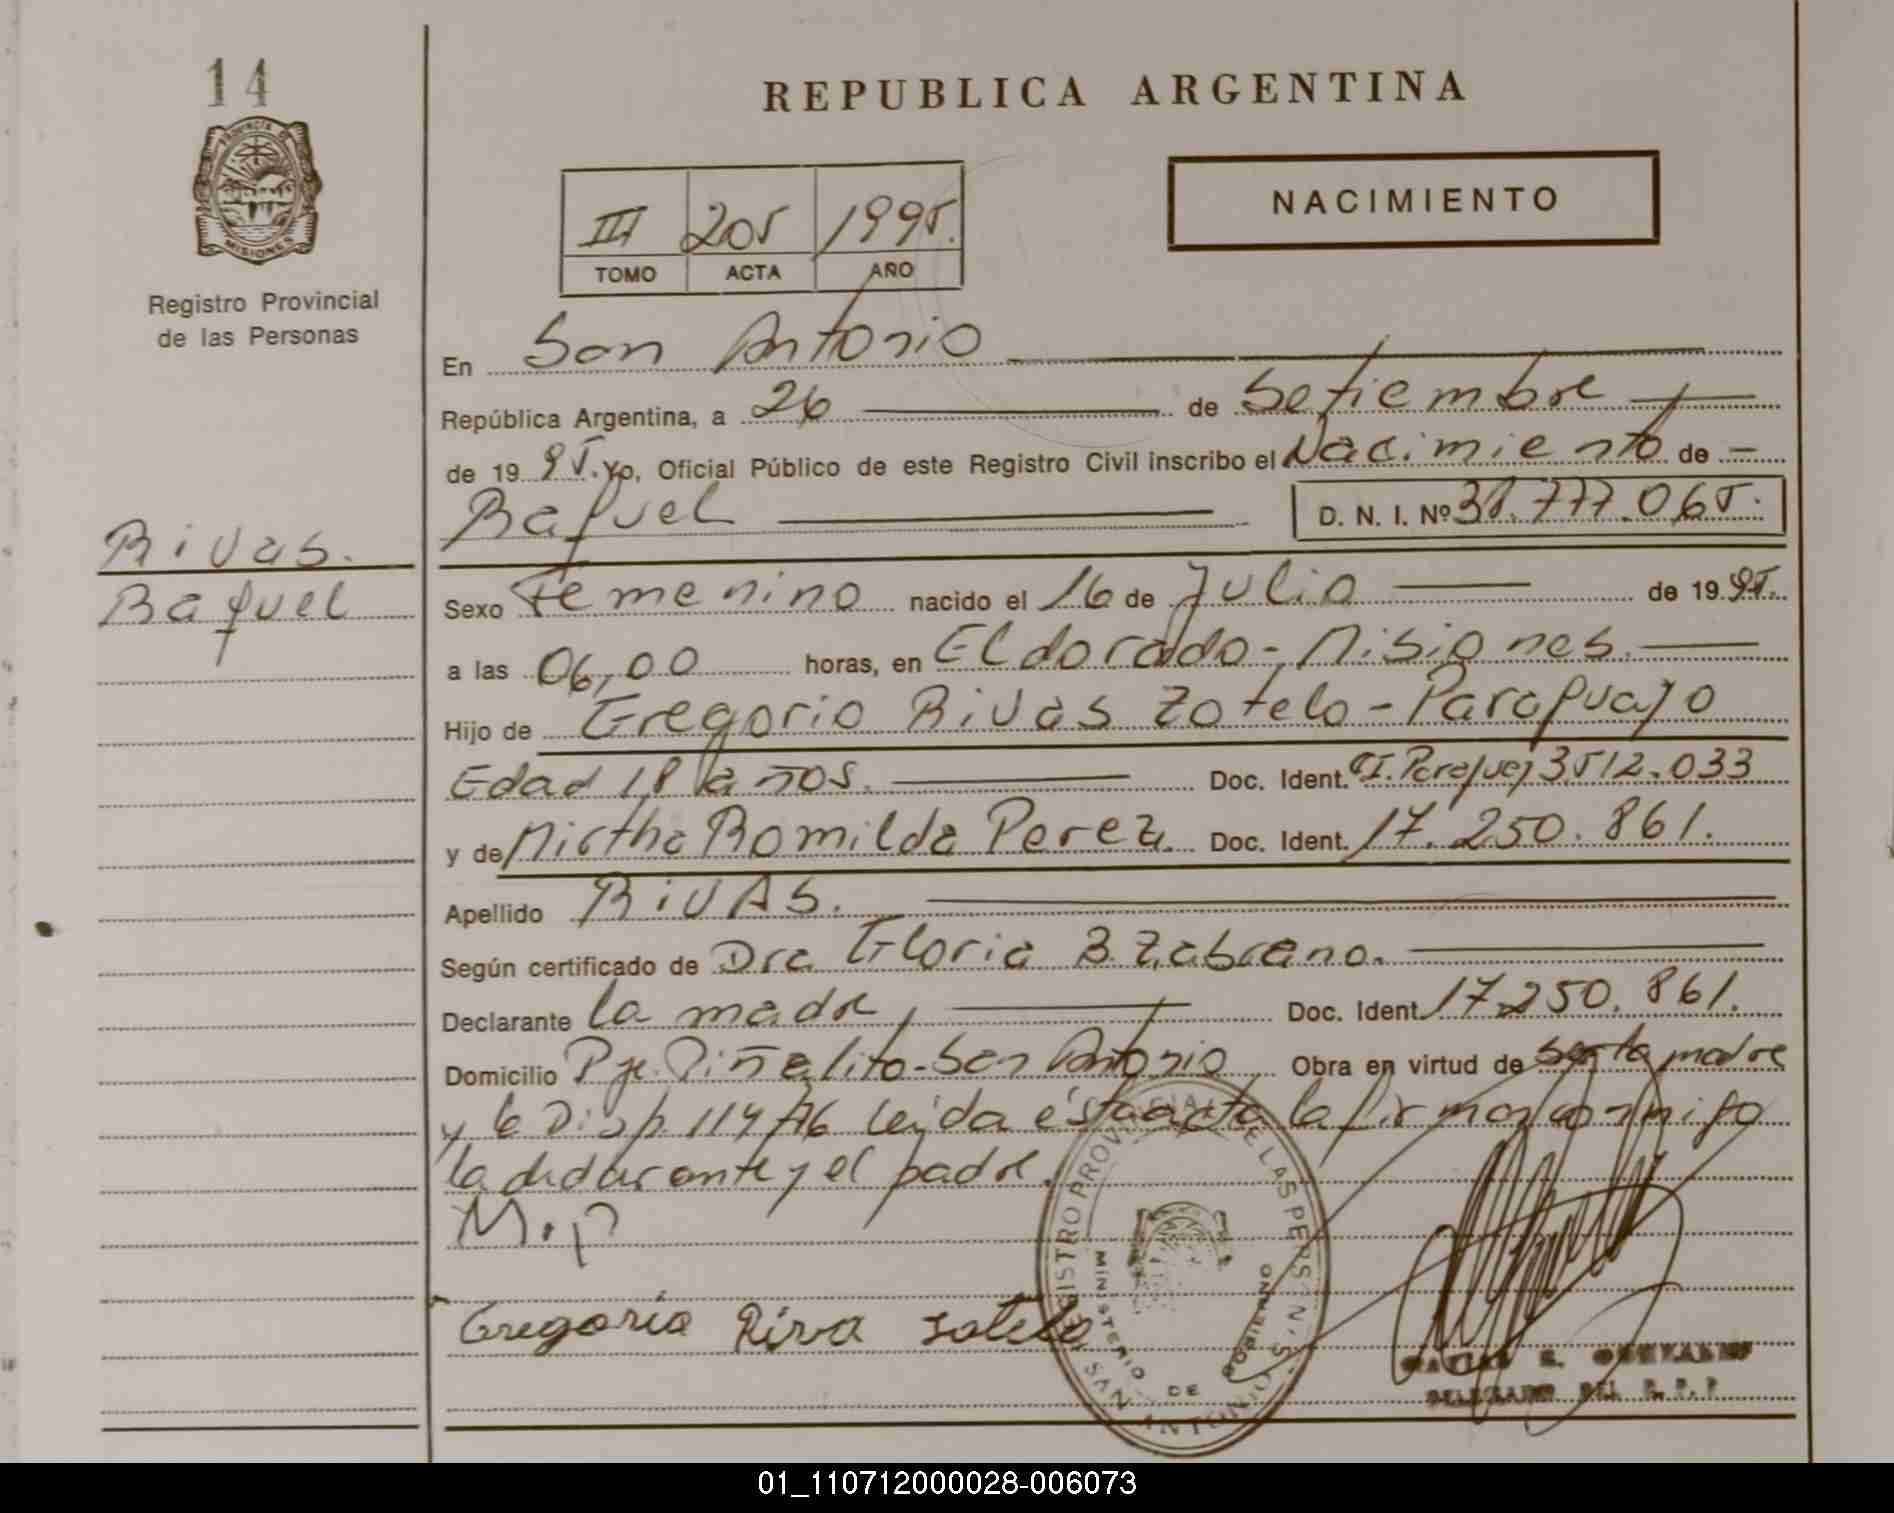 14
PROVINCIA DE
MISIONES
Registro Provincial
de las Personas
Rivas.
Raquel
REPUBLICA ARGENTINA
NACIMIENTO
III 205 1995.
TOMO ACTA AÑO
En San Antonio
República Argentina, a 26 de Setiembre
de 1995. Yo, Oficial Público de este Registro Civil inscribo el Nacimiento de
Raquel D. N. I. Nº 38.777.065.
Sexo Femenino nacido el 16 de Julio de 1995.
a las 06,00 horas, en Eldorado - Misiones.
Hijo de Gregorio Rivas Zotelo - Paraguayo
Edad 18 años. Doc. Ident. CI. Paraguay 3512.033
y de Mirtha Romilda Perez. Doc. Ident. 17.250.861.
Apellido RiVAS.
Según certificado de Dra Gloria B. Zabrano.
Declarante la madre Doc. Ident. 17.250.861.
Domicilio Pje. Piñalito - San Antonio Obra en virtud de ser la madre
y la Disp. 114/76 leída ésta acta la firman conmigo
la declarante y el padre.
M. P
Gregorio Riva Sotelo
REGISTRO PROVINCIAL DE LAS PERSONAS
MINISTERIO DE GOBIERNO
SAN ANTONIO
DELEGADO DEL R. P. P
01_110712000028-006073